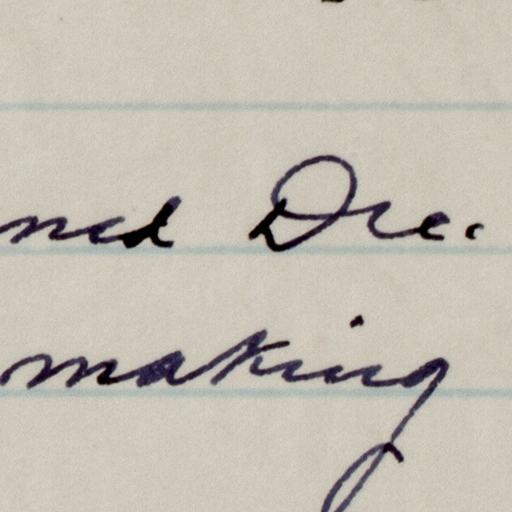 ned Dec.
making